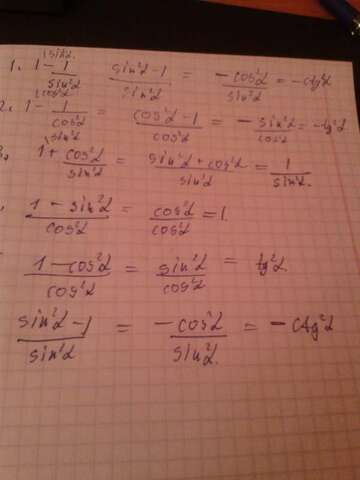 1. 1 - 1/sin²α = (sin²α - 1)/sin²α = -cos²α/sin²α = -ctg²α
2. 1 - 1/cos²α = (cos²α - 1)/cos²α = -sin²α/cos²α = -tg²α
1 + cos²α/sin²α = (sin²α + cos²α)/sin²α = 1/sin²α.
(1 - sin²α)/cos²α = cos²α/cos²α = 1.
(1 - cos²α)/cos²α = sin²α/cos²α = tg²α.
(sin²α - 1)/sin²α = -cos²α/sin²α. = -ctg²α